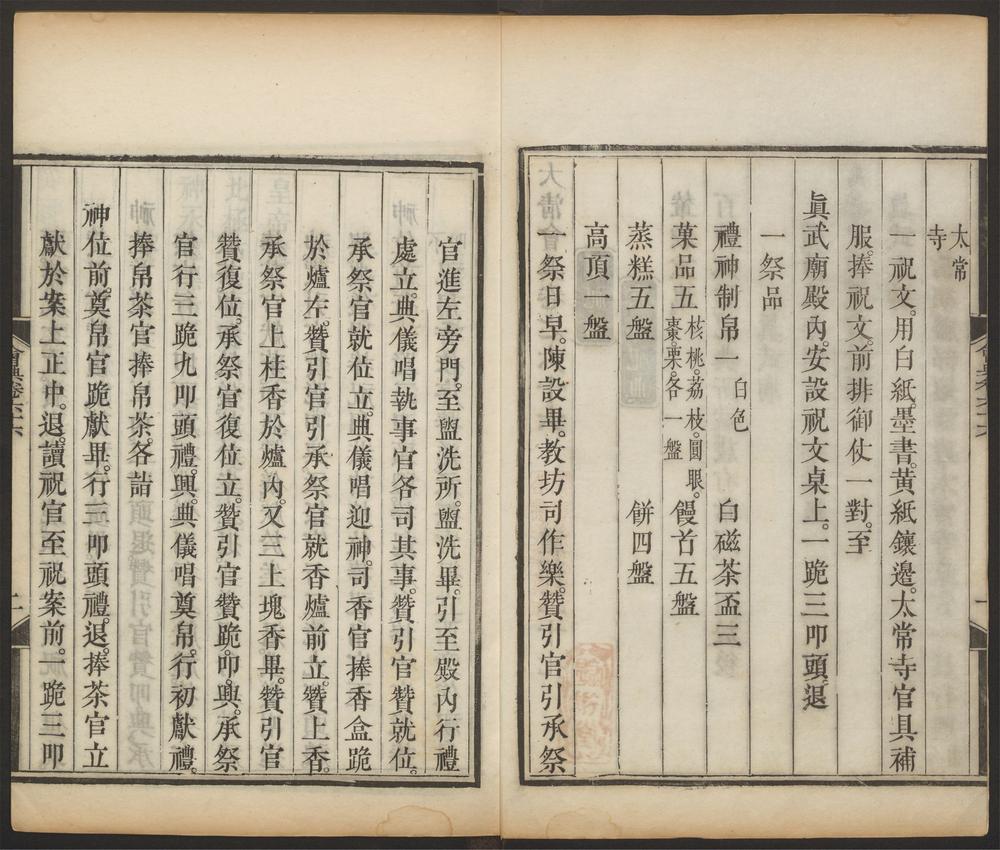 太常
寺
一祝文。用白紙。墨書。黃紙鑲邊。太常寺官具補
服。捧祝文。前排御仗一對。至
眞武廟殿內。安設祝文桌上。一跪三叩頭。退
一祭品
禮神制帛一白色 白磁茶盃三
菓品五核桃。荔枝。圓眼。棗。栗。各一盤 饅首五盤
蒸糕五盤 餅四盤
高頂一盤
一祭日早。陳設畢。教坊司作樂。贊引官引承祭
官進左旁門。至盥洗所。盥洗畢。引至殿內行禮
處立。典儀唱執事官各司其事。贊引官贊就位。
承祭官就位立。典儀唱迎神。司香官捧香盒跪
於爐左。贊引官引承祭官就香爐前立。贊上香。
承祭官上柱香於爐內。又三上塊香。畢。贊引官
贊復位。承祭官復位立。贊引官贊跪。叩。興。承祭
官行三跪九叩頭禮。興。典儀唱奠帛。行初獻禮。
捧帛茶官捧帛茶。各詣
神位前。奠帛官跪獻畢。行三叩頭禮。退。捧茶官立
獻於案上正中。退。讀祝官至祝案前。一跪三叩